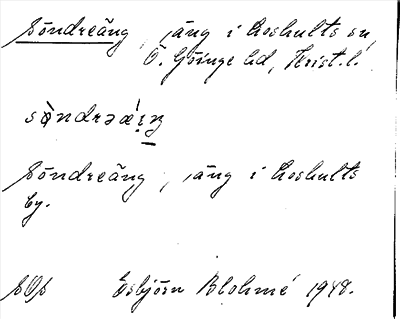 Söndreäng, äng i Loshults sn,
Ö. Göinge hd, Krist. l.
sö̀ndrəæ̀ŋ
Söndreäng, äng i Loshults
by.
SOS Esbjörn Blohmé 1948.